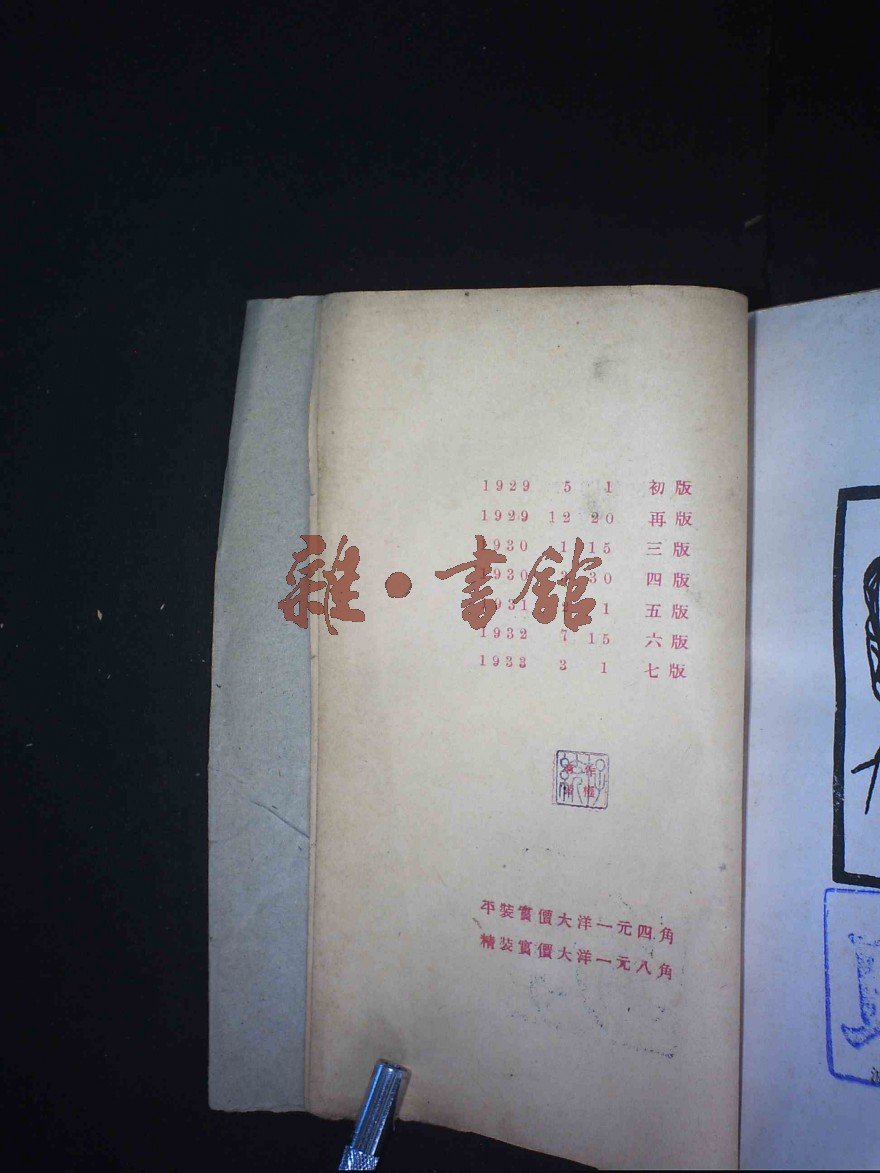 1929 5 1 初版
1929 12 20 再版
1930 1 15 三版
1930 3 30 四版
1931 2 1 五版
1932 7 15 六版
1933 3 1 七版
雜·書館
平裝實價大洋一元四角
精裝實價大洋一元八角